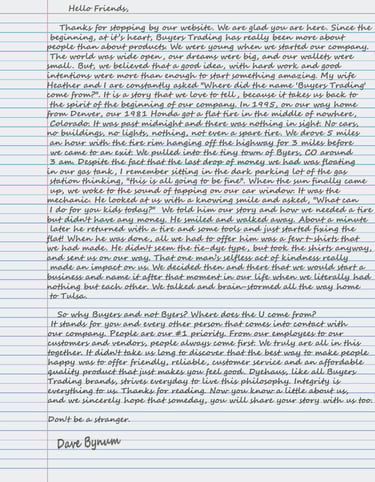 Hello Friends,
Thanks for stopping by our website. We are glad you are here. Since the
beginning, at it's heart, Buyers Trading has really been more about
people than about products. We were young when we started our company.
The world was wide open, our dreams were big, and our wallets were
small. But, we believed that a good idea, with hard work and good
intentions were more than enough to start something amazing. My wife
Heather and I are constantly asked "Where did the name 'Buyers Trading'
come from?". It is a story that we love to tell, because it takes us back to
the spirit of the beginning of our company. In 1995, on our way home
from Denver, our 1981 Honda got a flat tire in the middle of nowhere,
Colorado. It was past midnight and there was nothing in sight. No cars,
no buildings, no lights, nothing, not even a spare tire. We drove 5 miles
an hour with the tire rim hanging off the highway for 3 miles before
we came to an exit. We pulled into the tiny town of Byers, CO around
3 am. Despite the fact that the last drop of money we had was floating
in our gas tank, I remember sitting in the dark parking lot of the gas
station thinking, "this is all going to be fine". When the sun finally came
up, we woke to the sound of tapping on our car window. It was the
mechanic. He looked at us with a knowing smile and asked, "What can
I do for you kids today?" We told him our story and how we needed a tire
but didn't have any money. He smiled and walked away. About a minute
later he returned with a tire and some tools and just started fixing the
flat! When he was done, all we had to offer him was a few t-shirts that
we had made. He didn't seem the tie-dye type, but took the shirts anyway,
and sent us on our way. That one man's selfless act of kindness really
made an impact on us. We decided then and there that we would start a
business and name it after that moment in our life when we literally had
nothing but each other. We talked and brain-stormed all the way home
to Tulsa.
So why Buyers and not Byers? Where does the U come from?
It stands for you and every other person that comes into contact with
our company. People are our #1 priority. From our employees to our
customers and vendors, people always come first. We truly are all in this
together. It didn't take us long to discover that the best way to make people
happy was to offer friendly, reliable, customer service and an affordable
quality product that just makes you feel good. Dyehaus, like all Buyers
Trading brands, strives everyday to live this philosophy. Integrity is
everything to us. Thanks for reading. Now you know a little about us,
and we sincerely hope that someday, you will share your story with us too.
Don't be a stranger.
Dave Bynum